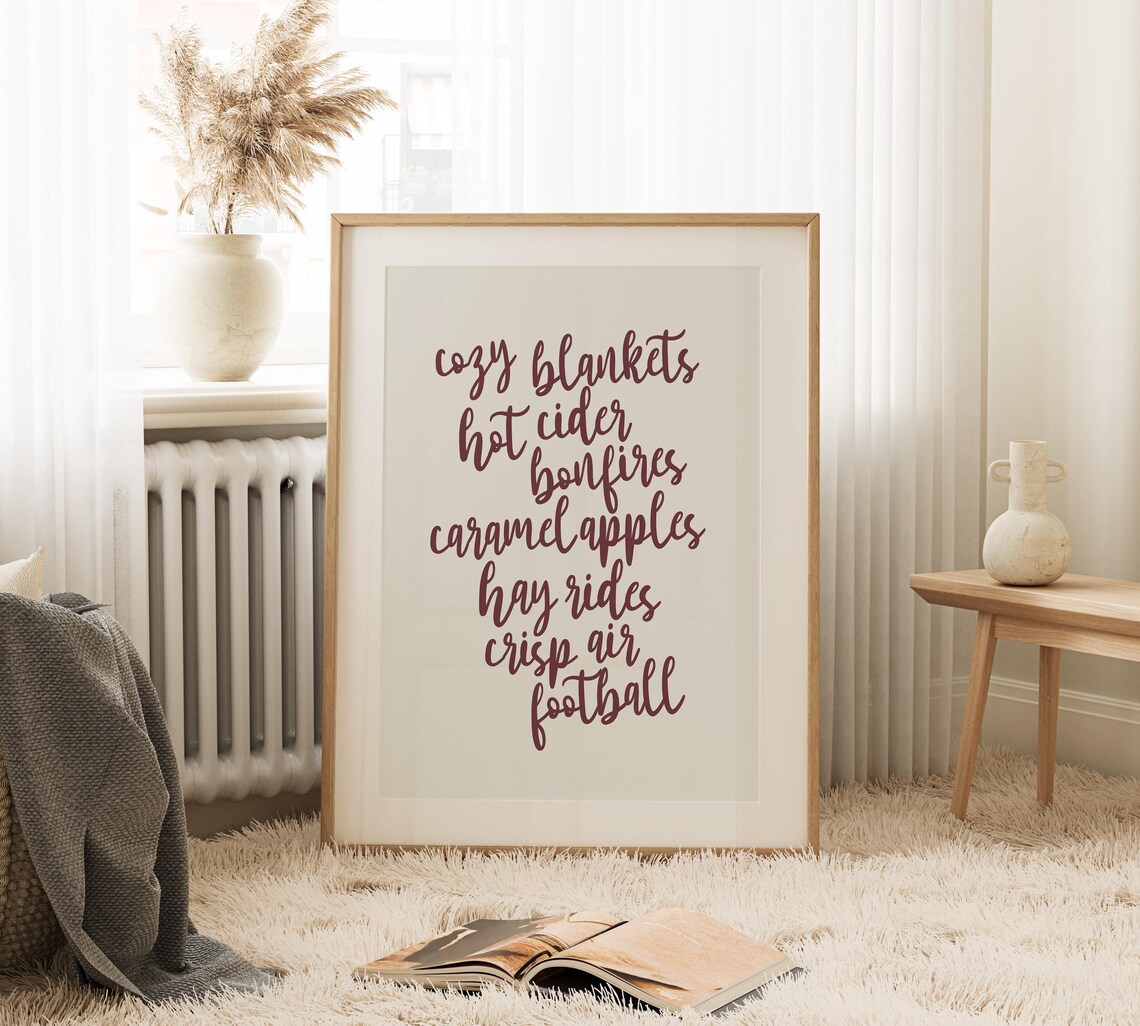 cozy blankets
hot cider
bonfires
caramel apples
hay rides
crisp air
football